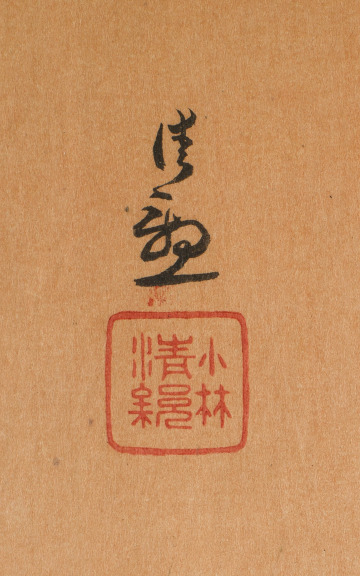 清親
小林
清親